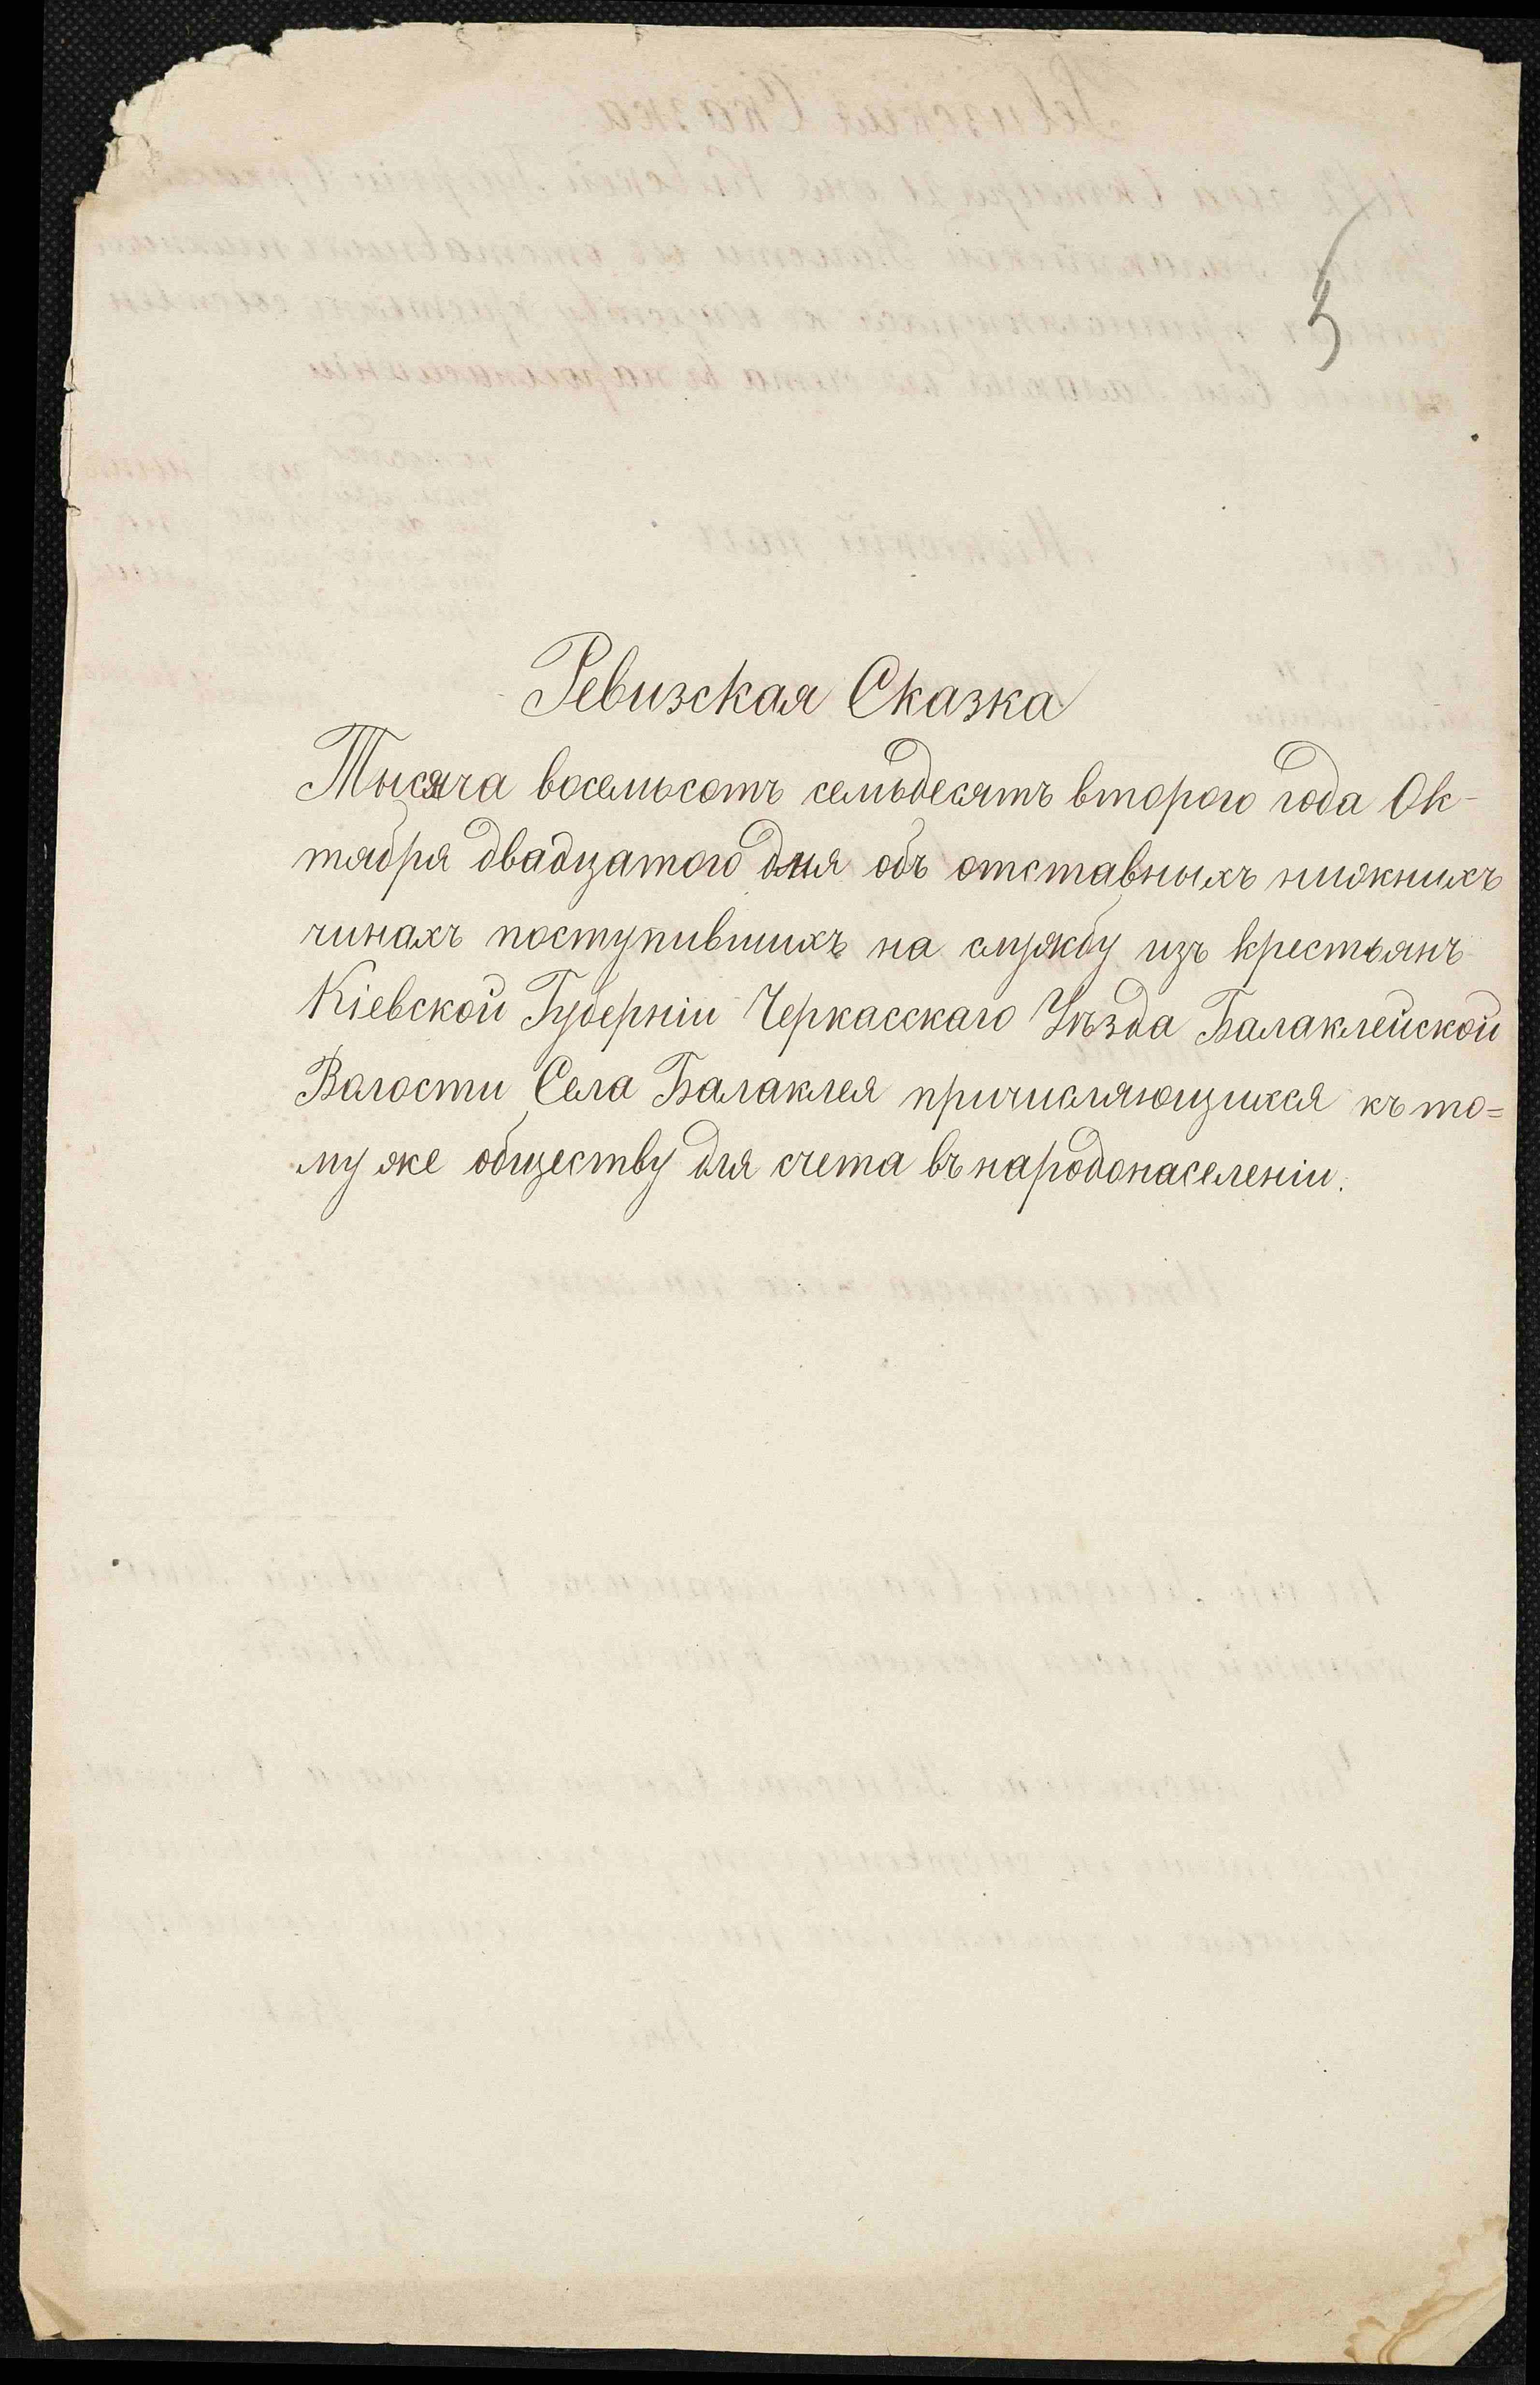 5
Ревизская Сказка
Тысяча восемьсотъ семьдесятъ второго года Ок-
тября двадцатого дня объ отставныхъ нижнихъ
чинахъ поступившихъ на службу изъ крестьянъ
Кіевской Губерніи Черкасскаго Уѣзда Балаклейской
Волости Села Балаклея причисляющихся къ то=
му же обществу для счета въ народонаселеніи.